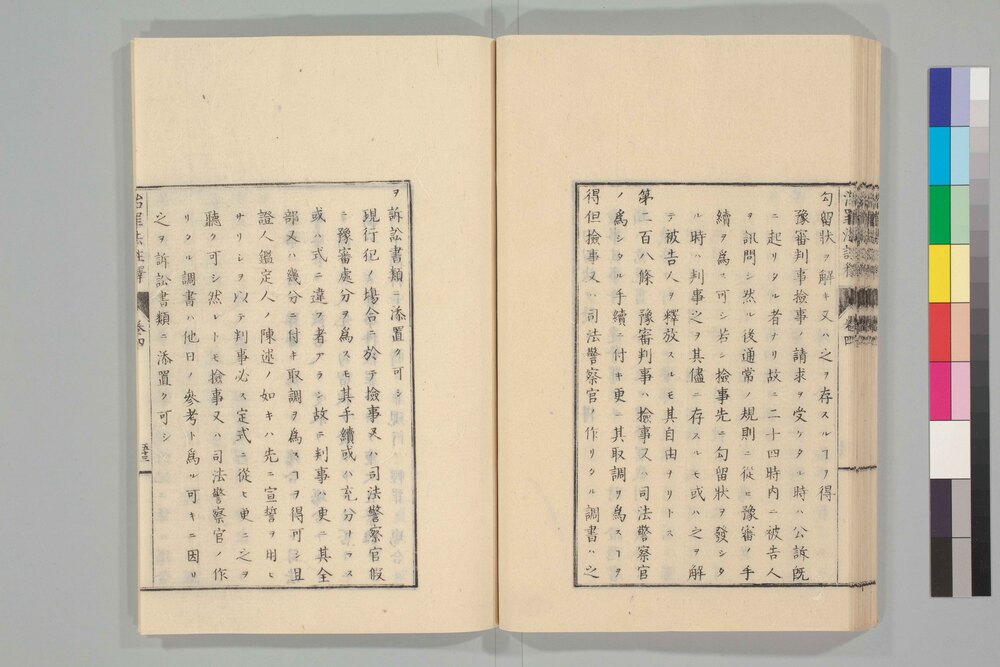 勾留狀ヲ解キ又ハ之ヲ存スルヿヲ得
豫審判事撿事ノ請求ヲ受ケタル時ハ公訴既
ニ起リタル者ナリ故ニ二十四時内ニ被告人
ヲ訊問シ然ル後通常ノ規則ニ從ヒ豫審ノ手
續ヲ爲ス可シ若シ撿事先ニ勾留狀ヲ發シタ
ル時ハ判事之ヲ其儘ニ存スルモ或ハ之ヲ解
テ被告人ヲ釋放スルモ其自由ヲリトス
第二百八條豫審判事ハ撿事又ハ司法警察官
ノ爲シタル手續ニ付キ更ニ其取調ヲ爲スヿヲ
得但撿事又ハ司法警察官ノ作リタル調書ハ之
ヲ訴訟書類ニ添置ク可シ
現行犯ノ塲合ニ於テ撿事又ハ司法警察官假
ニ豫審處分ヲ爲スモ其手續或ハ充分ナラス
或ハ式ニ違フ者アラン故ニ判事ハ更ニ其全
部又ハ幾分ニ付キ取調ヲ爲スヿヲ得可シ且
證人鑑定人ノ陳述ノ如キハ先ニ宣誓ヲ用ヒ
サリシヲ以テ判事必ス定式ニ從ヒ更ニ之ヲ
聽ク可シ然レトモ撿事又ハ司法警察官ノ作
リタル調書ハ他日ノ參考ト爲ル可キニ因リ
之ヲ訴訟書類ニ添置ク可シ
治罪法註釋 卷四 五十三